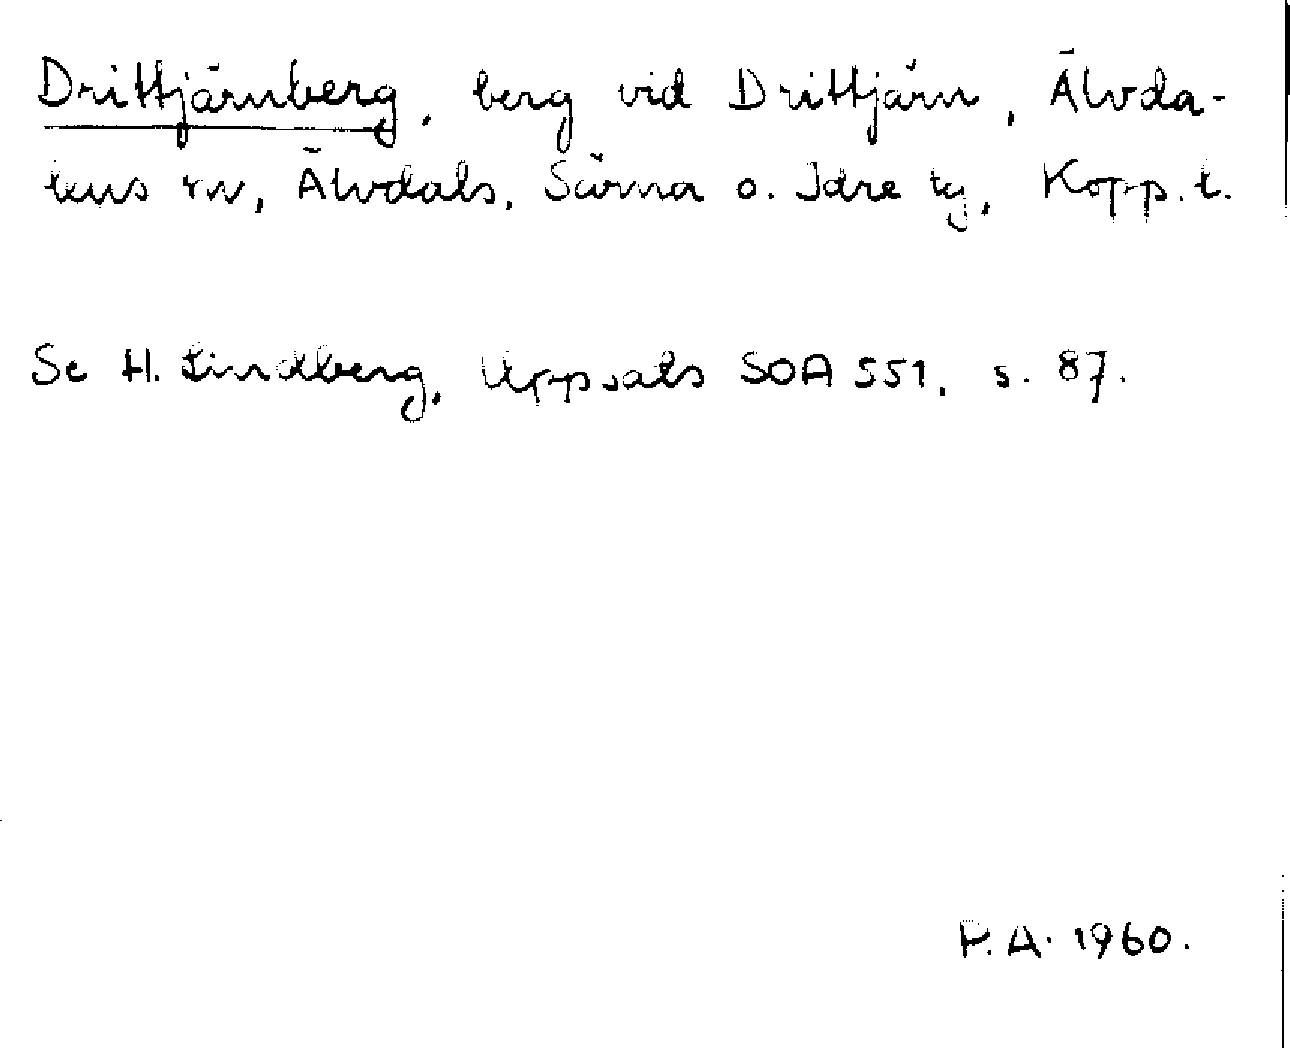 Drittjärnberg, berg vid Drittjärn, Älvda-
lens sn, Älvdals, Särna o. Idre tg, Kopp. l.
Se H. Lindberg, Uppsats SOA 551, s. 87.
P.A. 1960.